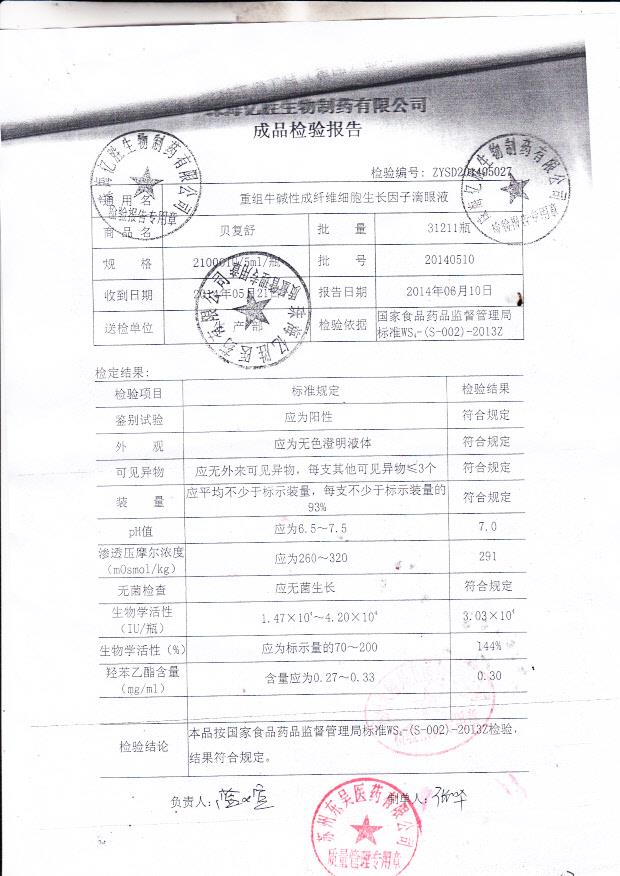 珠海亿胜生物制药有限公司
成品检验报告
检验编号: ZYSD201405027
通用名 重组牛碱性成纤维细胞生长因子滴眼液
商品名 贝复舒 批量 31211瓶
规格 21000IU/5ml/瓶 批号 20140510
收到日期 2014年05月21日 报告日期 2014年06月10日
送检单位 产部 检验依据 国家食品药品监督管理局
标准WS₄-(S-002)-2013Z
检定结果:
检验项目 标准规定 检验结果
鉴别试验 应为阳性 符合规定
外观 应为无色澄明液体 符合规定
可见异物 应无外来可见异物，每支其他可见异物≤3个 符合规定
装量 应平均不少于标示装量，每支不少于标示装量的
93% 符合规定
pH值 应为6.5～7.5 7.0
渗透压摩尔浓度
(mOsmol/kg) 应为260～320 291
无菌检查 应无菌生长 符合规定
生物学活性
(IU/瓶) 1.47×10⁴～4.20×10⁴ 3.03×10⁴
生物学活性(%) 应为标示量的70～200 144%
羟苯乙酯含量
(mg/ml) 含量应为0.27～0.33 0.30
检验结论 本品按国家食品药品监督管理局标准WS₄-(S-002)-2013Z检验，
结果符合规定。
负责人: 制单人:
珠海亿胜生物制药有限公司
检验报告专用章
珠海亿胜生物制药有限公司
检验报告专用章
珠海亿胜医药有限公司
质量管理专用章
苏州东吴医药有限公司
质量管理专用章